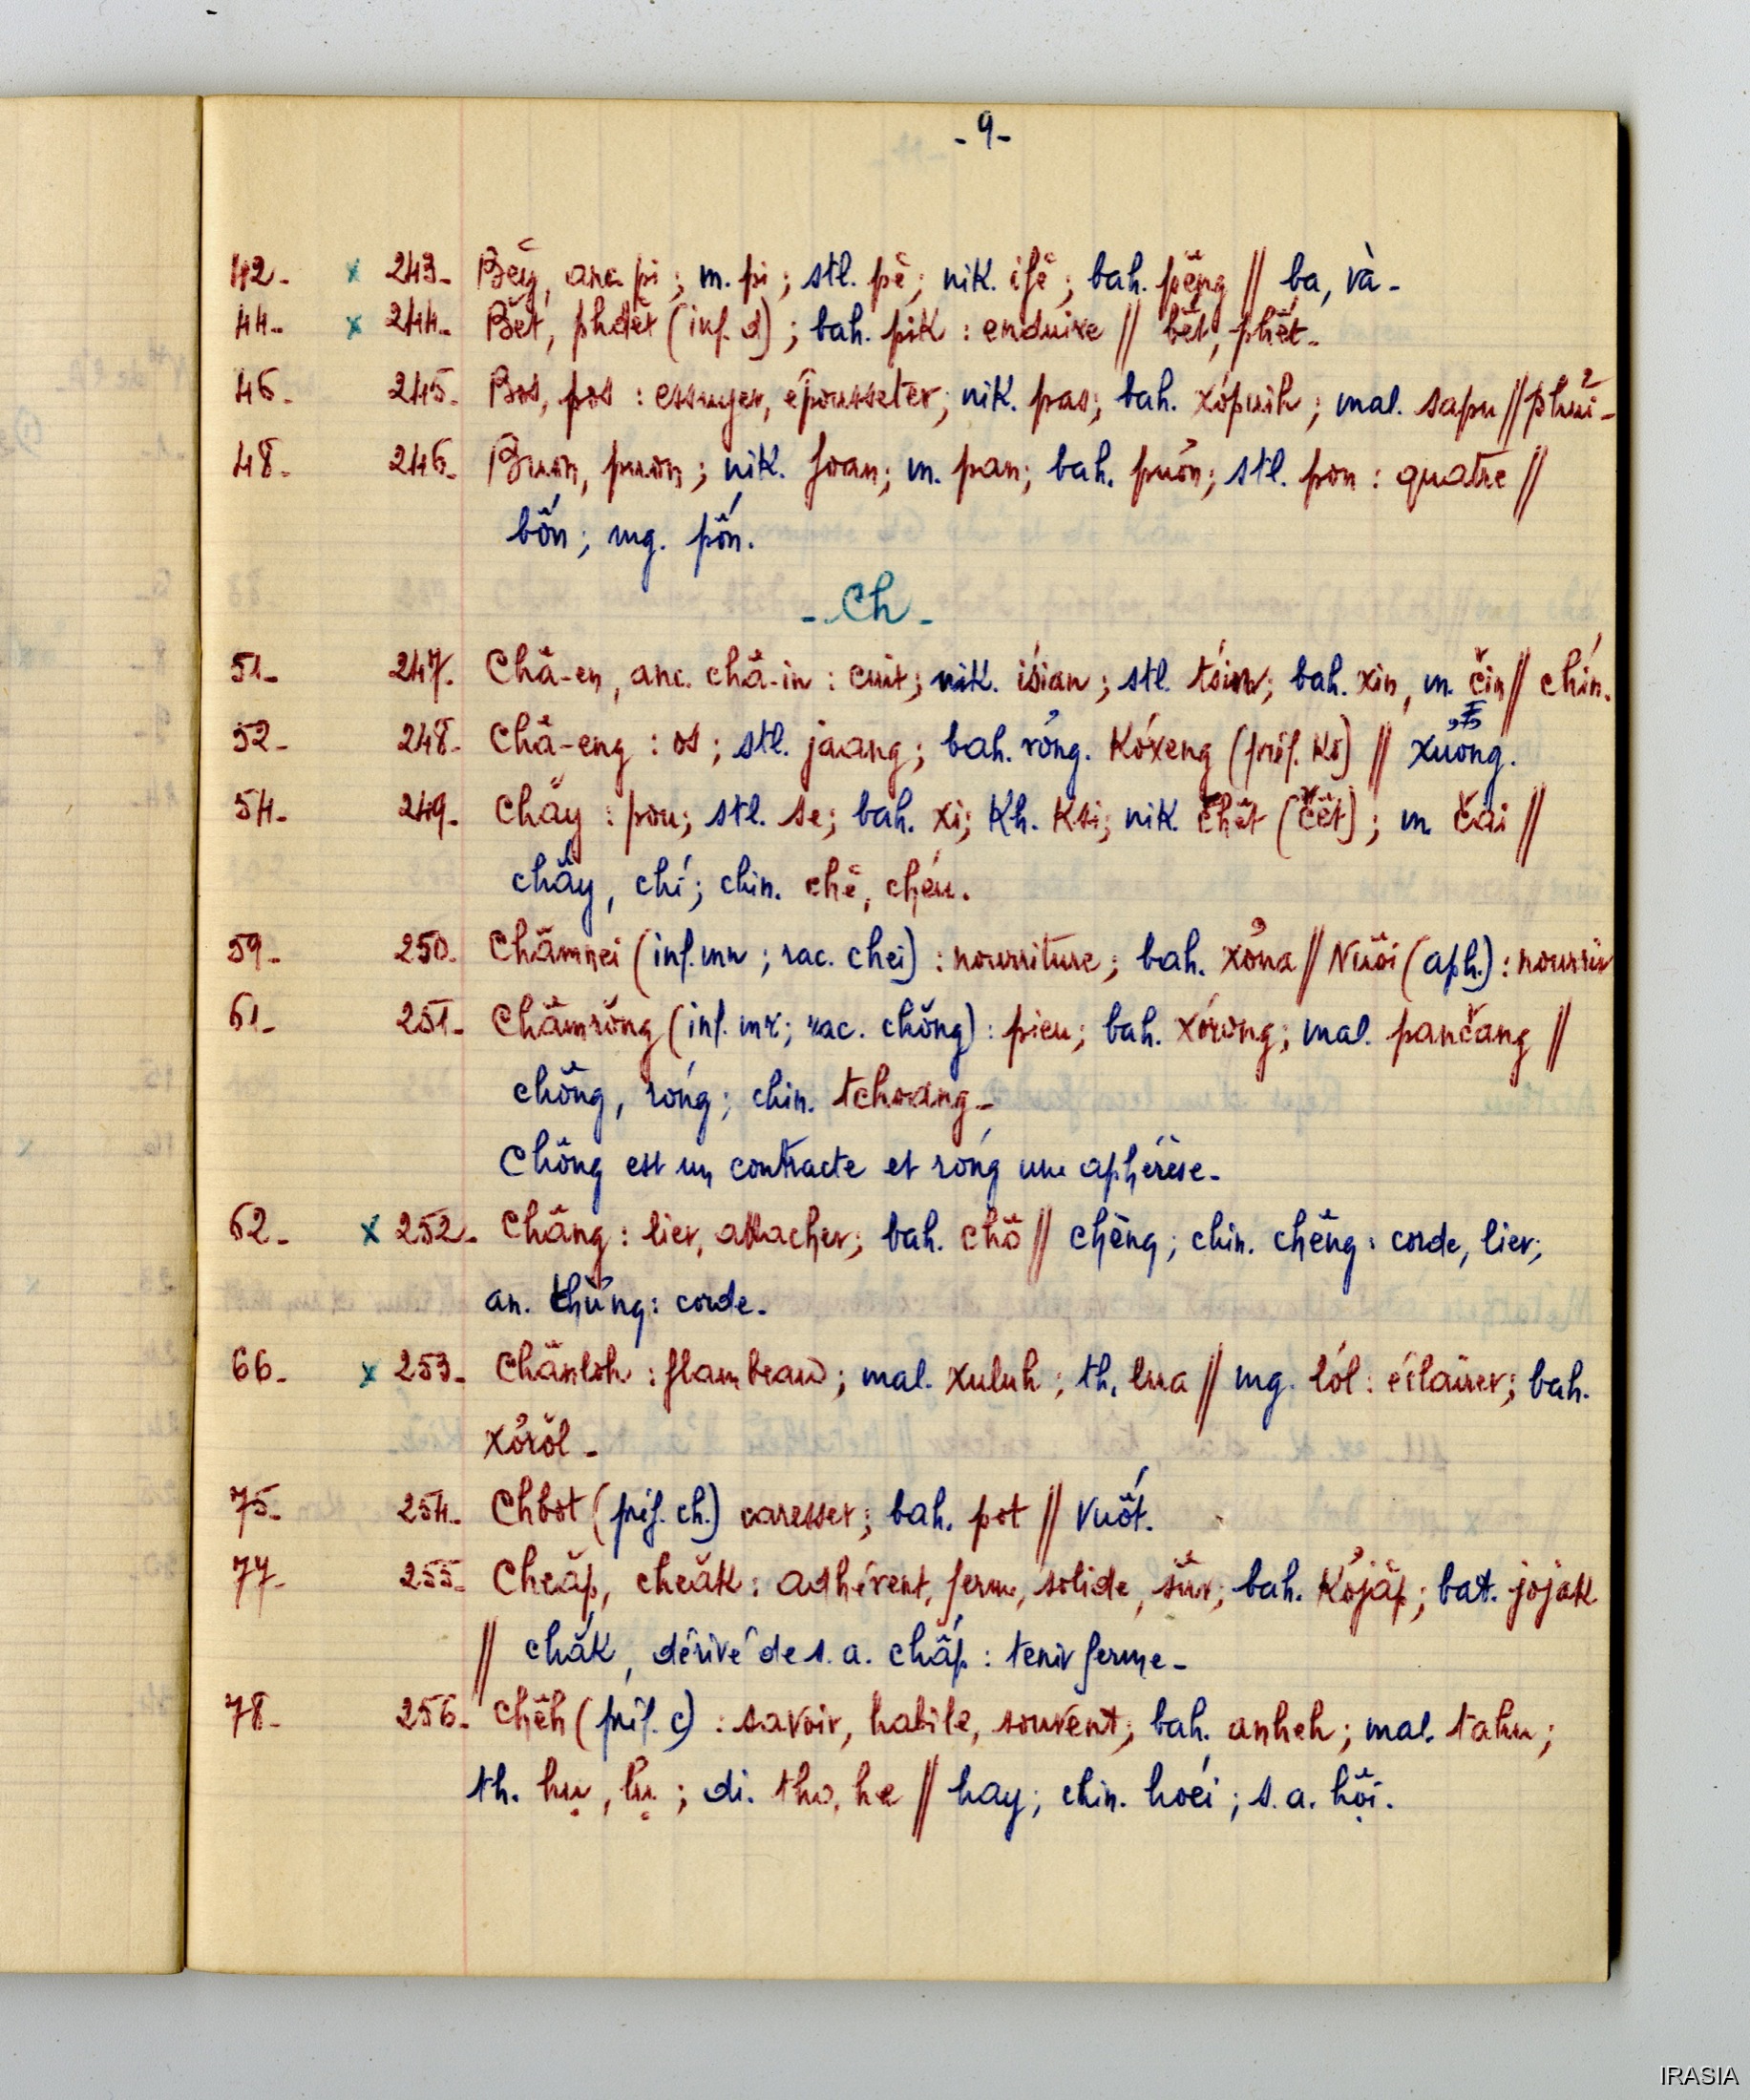 - 9 -
42 - x 243 - Bĕy, anc. pi ; m. pi ; stl. pê ; nik. ifê ; bah. pêng // ba, và -
44 - x 244 - Bĕt, phdĕt (inf. d) ; bah. pik : enduire // bêt, phêt -
46 - 245 - Bos, pos : essuyer, épousseter ; nik. pas ; bah. xópuih ; mal. sapu // phủi -
48 - 246 - Buon, puon ; nik. foan ; m. pan ; bah. puôn ; stl. pon : quatre //
bốn ; mg. pốn.
- Ch -
51 - 247 - Châ-en, anc. châ-in : cuit ; nik. iśian ; stl. tśin ; bah. xin, m. čin // chín.
52 - 248 - Châ-eng : os ; stl. jaang ; bah. róng. Kóxeng (préf. Kó) // xương.
54 - 249 - Chăy : pou ; stl. se ; bah. xi ; Kh. Ksi ; nik. chêt (čêt) ; m. čăi //
chấy, chí ; chin. chê, chéu.
59 - 250 - Chămnei (inf. mn ; rac. chei) : nourriture ; bah. xỏna // Nuôi (aph.) : nourrir
61 - 251 - Chămrŏng (inf. mr ; rac. chŏng) : pieu ; bah. xórong ; mal. pančang //
chông, róng ; chin. tchoang -
Chông est un contracte et róng une aphérèse -
62 - x 252 - Châng : lier, attacher ; bah. chô // chêng ; chin. chêng : corde, lier ;
an. thừng : corde -
66 - x 253 - Chănloh : flambeau ; mal. xuluh ; th. lua // mg. lól : éclairer ; bah.
xỏrŏl -
75 - 254 - Chbot (préf. ch.) caresser ; bah. pot // vuốt.
77 - 255 - Cheăp, cheăk : adhérent, ferme, solide, sûr ; bah. Kỏjăp ; bat. jojak
// chắk, dérivé de s. a. chấp : tenir ferme -
78 - 256 - Chĕh (préf. c) : savoir, habile, souvent ; bah. anheh ; mal. tahu ;
th. hụ, lụ ; di. tho, he // hay ; chin. hoéi ; s. a. hội.
IRASIA